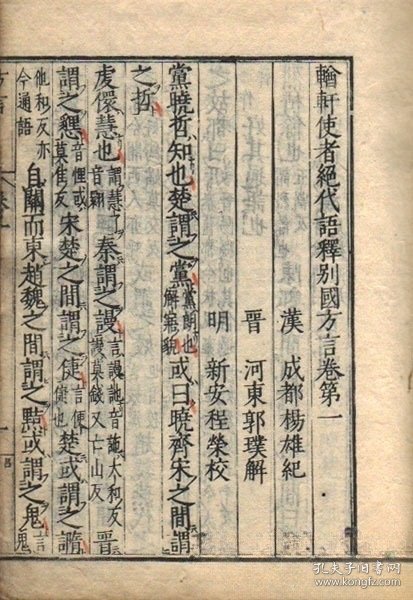 輶軒使者絕代語釋别國方言卷第一
漢 成都楊雄紀
晉 河東郭璞解
明 新安程榮校
黨曉哲知也楚謂之黨黨朗也解寤貌或曰曉齊宋之間謂
之哲
虔儇慧也謂慧了音翾秦謂之謾言謾音大和反謾莫錢又亡山反晉
謂之㦟音悝或莫佳反宋楚之間謂之倢言便倢也楚或謂之䜏
他和反亦今通語自關而東趙魏之間謂之黠或謂之鬼言鬼
孔夫子旧书网
www.kongfz.com